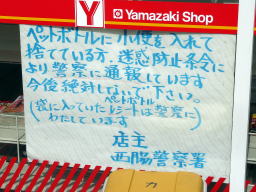 Y Yamazaki Shop
ペットボトルに小便を入れて
捨てている方.迷惑防止条令に
より警察に通報しています
今後絶対しないで下さい。
ペットボトル
(袋に入っていたレシートは警察に
わたしています)
店主
西警察署
カ